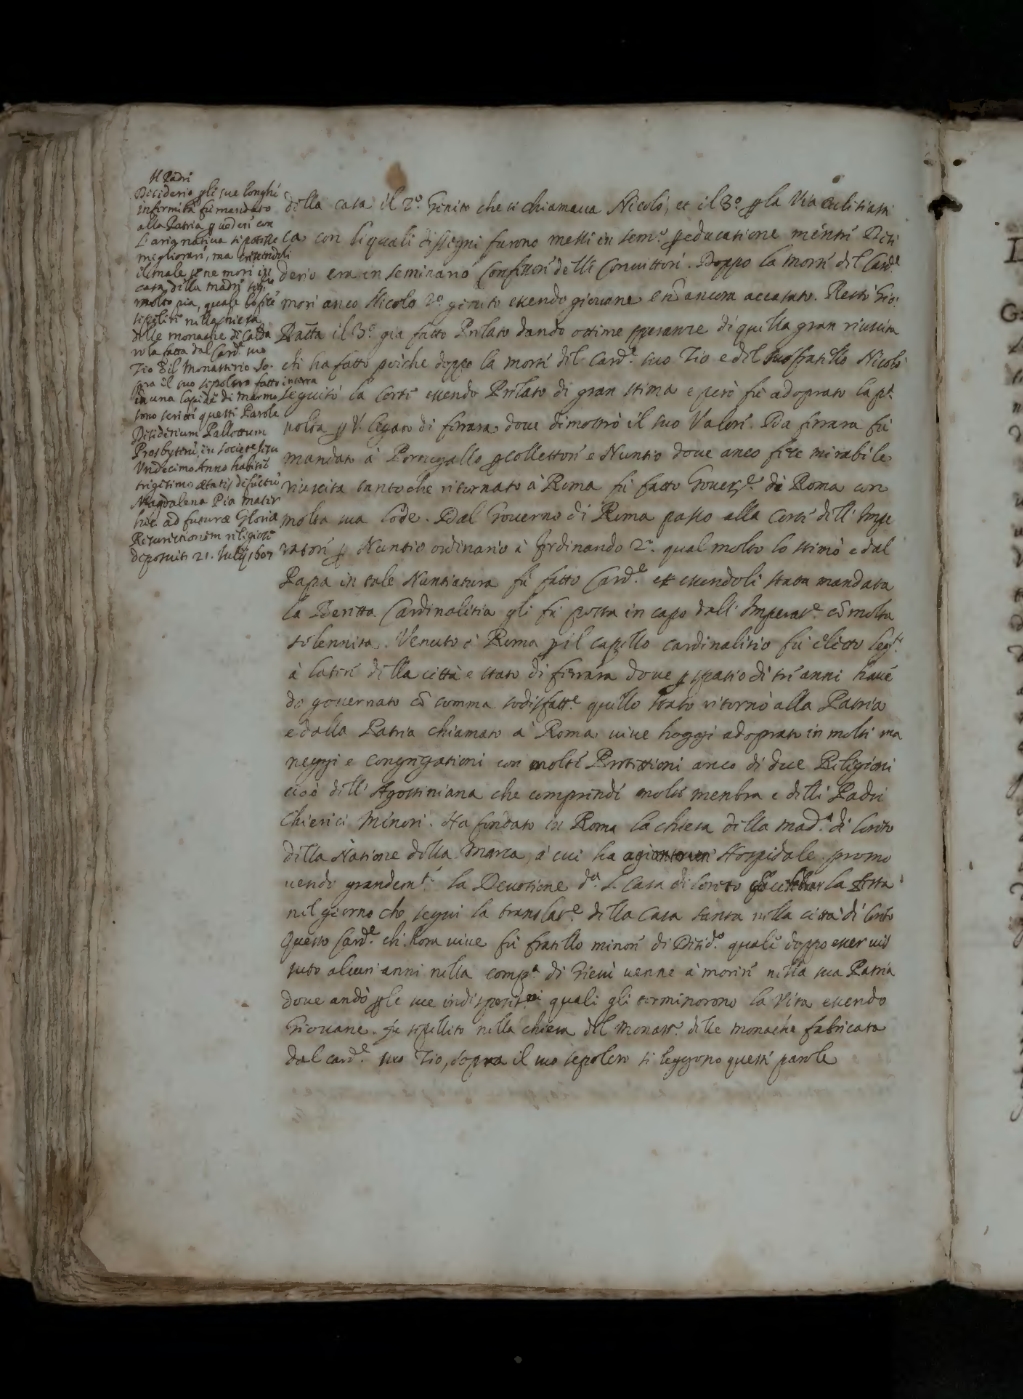 Il Padre
Desiderio p le sue longhe
infermità fù mandato
alla Patria p veder con
L'aria nativa si potesse
migliorari, ma crescendoli
il male se ne morì in
casa della madre sig.ra
molto pia, quale lo fece
sepolire nella chiesa
delle monache di Calda
rola fatta dal Card. suo
Tio & il Monasterio So-
pra il suo sepolcro fatto in terra
in una lapide di marmo
sono scritte queste Parole
Desiderium Pallottum
Presbyterum in Societe Iesu
Undecimo Anno habitu
trigesimo aetatis defunctū
Magdalena Pia mater
hic ad futurae Gloriae
Resurrectionem religiose
deposuit 21. Iulij 1607
della casa il 2.º Genito che si chiamava Nicolò, et il 3.º p la Via eclesiasti
ca, con li quali dissegni furono messi in sem.º p educatione mentre Desi
derio era in seminario Confessore delli Convittori. Doppo la morte del Card.e
morì anco Nicolo 2.º genito essendo giovane e nō ancora accasato. Restò Gio:
Batta il 3.º gia fatto Prelato dando ottime speranze di quella gran riuscita
che ha fatto perche doppo la morte del Card.e suo Tio e del suo fratello Nicolò
seguitò la Corte essendo Prelato di gran stima e però fù adoprato la p.a
volta p V. Legato di ferrara dove dimostrò il suo Valore. Da ferrara fù
mandato à Portogallo p collettore e Nuntio dove anco fece mirabile
riuscita tanto che ritornato à Roma fù fatto Gover.re de Roma con
molta sua lode. Dal Governo di Roma passò alla Corte dell' Impe
ratore p Nuntio ordinario à ferdinando 2.º qual molto lo stimò e dal
Papa in tale Nuntiatura fù fatto Card.e et essendoli stata mandata
la Beretta Cardinalitia gli fù posta in capo dall' Imperat.e cō molta
solennità. Venuto à Roma p il capello cardinalitio fù eletto leg.to
à latere della città e stato di ferrara dove p spatio di tre anni havē
do governato cō somma sodisfatt.e quello stato ritornò alla Patria
e dalla Patria chiamato à Roma vive hoggi adoprato in molti ma
neggi e congregationi con molte Protettioni anco di due Religioni
cioè dell' Agostiniana che comprende molte membra e delli Padri
Chierici Minori. Ha fondato in Roma la chiesa della Mad.a di loreto
della Natione della Marca, à cui ha Hospidale promo
vendo grandem.te la Devotione d.a S. Casa di loreto la festa
nel giorno che seguì la translat.e della Casa Santa nella città di loreto
Questo Card.e che hora vive fù fratello minore di Desid.o quale doppo esser vis
suto alcuni anni nella comp.a di Giesù venne à morire nella sua Patria
dove andò p le sue indispositioni quali gli terminorono la Vita essendo
Giovane. fu sepellito nella chiesa del monast.º delle monache fabricata
dal card.e suo Tio, sopra il suo sepolcro si leggono queste parole